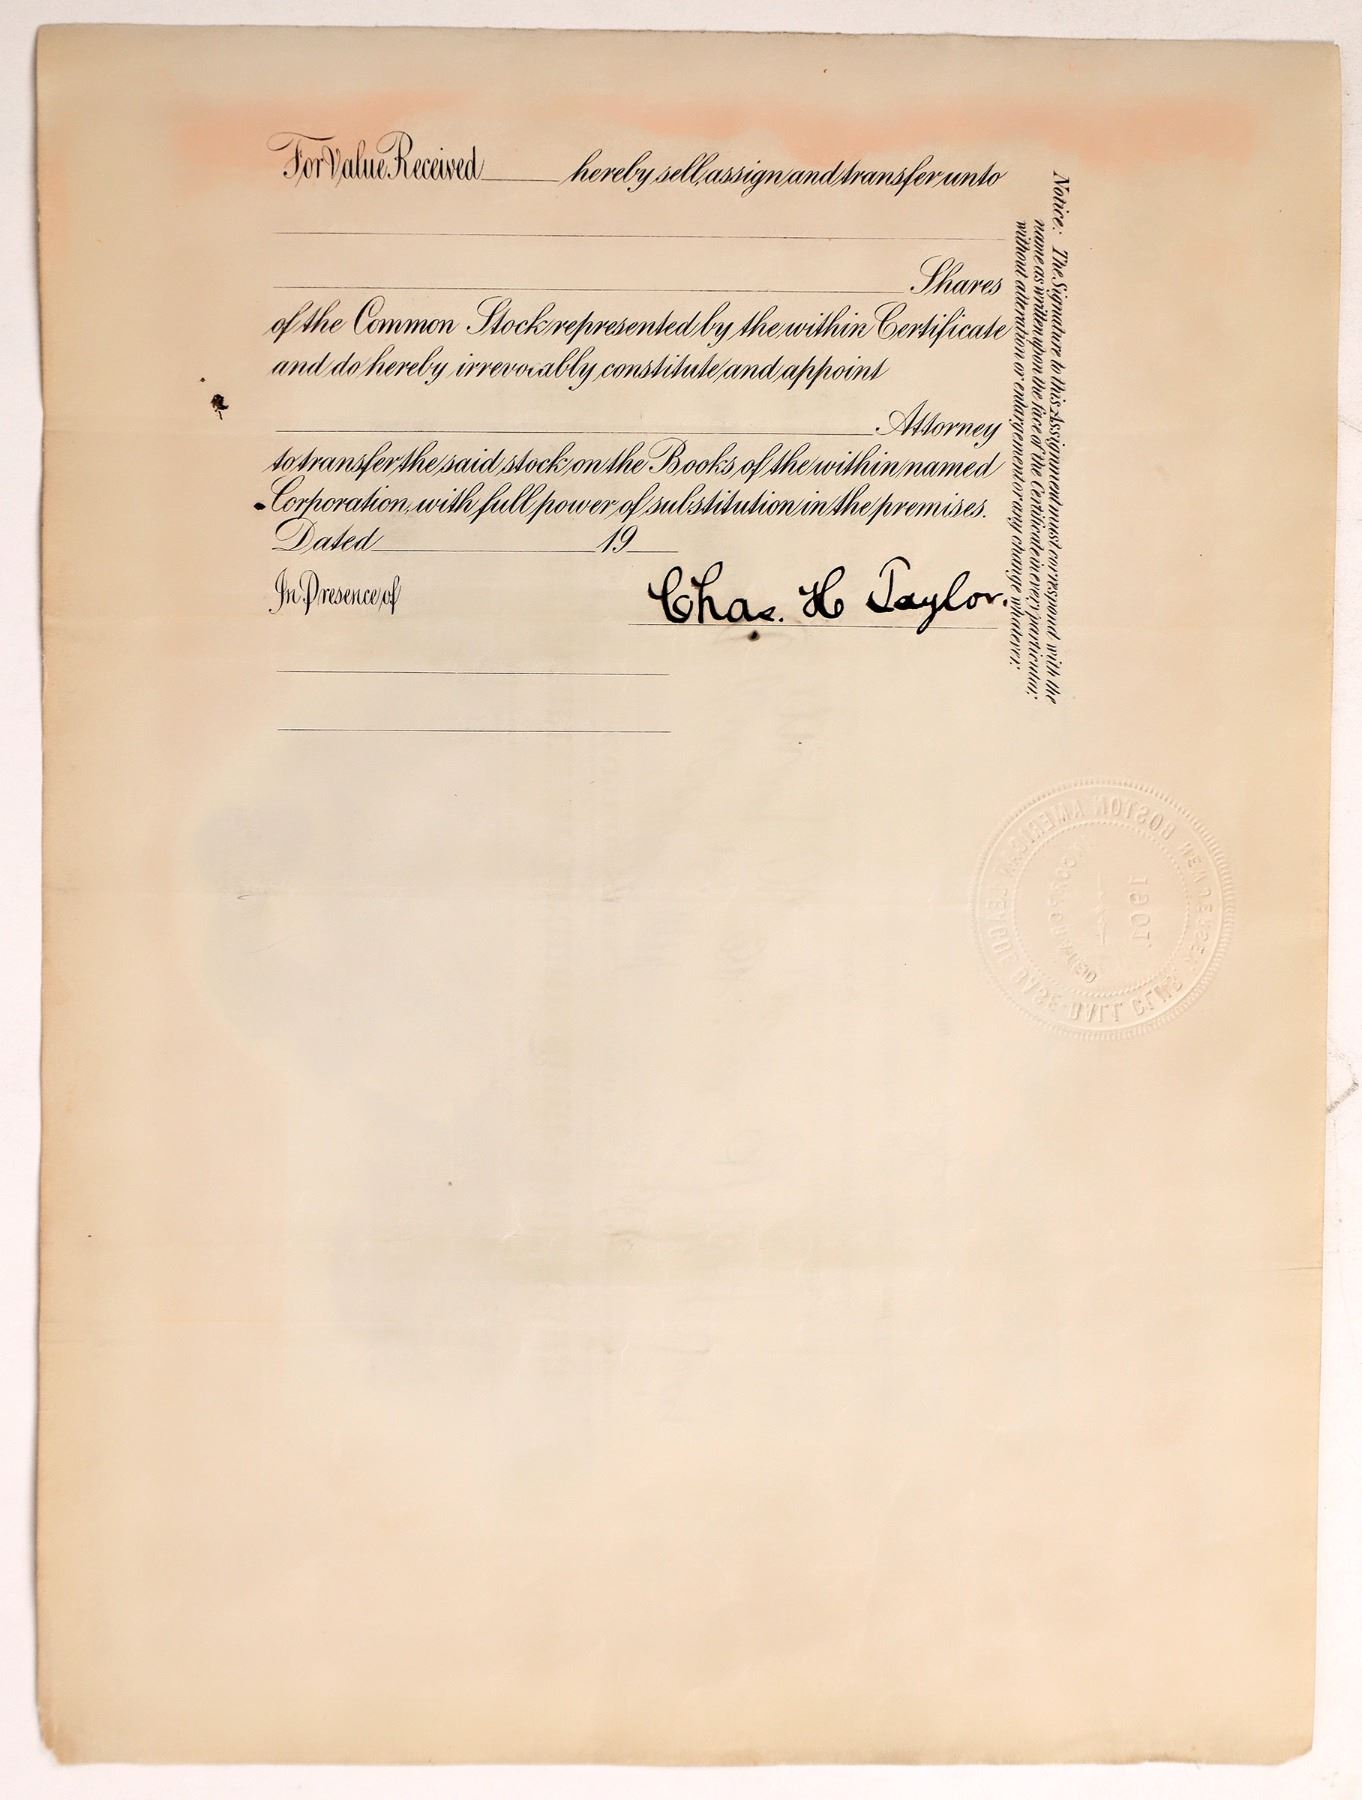 For Value Received____ hereby sell, assign and transfer unto
Shares
of the Common Stock represented by the within Certificate
and do hereby irrevocably constitute and appoint
Attorney
to transfer the said stock on the Books of the within named
Corporation, with full power of substitution in the premises.
Dated____ 19__
In Presence of
Chas. H Taylor.
Notice: The Signature to this Assignment must correspond with the
name as written upon the face of the Certificate in every particular,
without alteration or enlargement or any change whatever.
BOSTON AMERICAN LEAGUE BASE-BALL CLUB
INCORPORATED
1901
NEW JERSEY